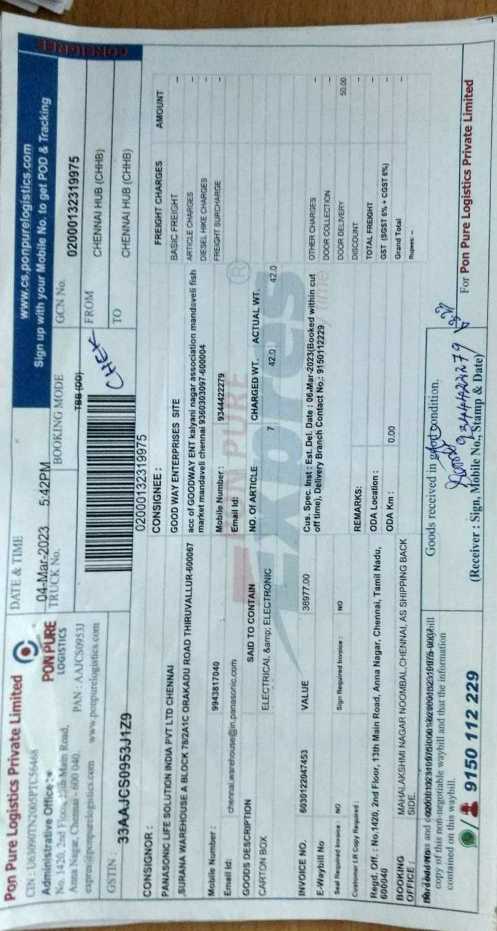 CONSIGNEE
Pon Pure Logistics Private Limited
CIN : U63090TN2005PTC56468
Administrative Office :-
No. 1420, 2nd Floor, 13th Main Road,
Anna Nagar, Chennai - 600 040.
PAN : AAJCS0953J
www.ponpurelogistics.com
GSTIN : 33AAJCS0953J1Z9
PON PURE
LOGISTICS
DATE & TIME
04-Mar-2023 5:42PM
TRUCK No.
BOOKING MODE
TBB (00)
www.cs.ponpurelogistics.com
Sign up with your Mobile No. to get POD & Tracking
GCN No.
02000132319975
FROM
CHENNAI HUB (CHHB)
TO
CHENNAI HUB (CHHB)
02000132319975
CONSIGNOR :
PANASONIC LIFE SOLUTION INDIA PVT LTD CHENNAI
,SURANA WAREHOUSE A BLOCK 792A1C ORAKADU ROAD THIRUVALLUR-600067
Mobile Number : 9943817040
Email Id: chennai.warehouse@in.panasonic.com
CONSIGNEE :
GOOD WAY ENTERPRISES SITE
acc of GOODWAY ENT kalyani nagar association mandaveli fish
market mandaveli chennai 9360303097-600004
Mobile Number : 9344422279
Email Id:
GOODS DESCRIPTION
SAID TO CONTAIN
NO. OF ARTICLE
CHARGED WT.
ACTUAL WT.
CARTON BOX
ELECTRICAL &amp; ELECTRONIC
7
42.0
42.0
INVOICE NO.
6030122047453
VALUE
38977.00
E-Waybill No
Cus. Spec. Inst : Est. Del. Date : 06-Mar-2023(Booked within cut
off time), Delivery Branch Contact No.: 9150112229
Seal Required Invoice : NO
Sign Required Invoice : NO
Customer LR Copy Required :
REMARKS:
Regd. Off. : No.1420, 2nd Floor, 13th Main Road, Anna Nagar, Chennai, Tamil Nadu,
600040
ODA Location :
ODA Km : 0.00
BOOKING
OFFICE :
MAHALAKSHMI NAGAR NOOMBAL,CHENNAI, AS SHIPPING BACK
SIDE,
FREIGHT CHARGES
AMOUNT
BASIC FREIGHT –
ARTICLE CHARGES –
DIESEL HIKE CHARGES –
FREIGHT SURCHARGE –
OTHER CHARGES –
DOOR COLLECTION –
DOOR DELIVERY 50.00
DISCOUNT –
TOTAL FREIGHT –
GST (SGST 6% + CGST 6%) –
Grand Total –
Rupees: --
PON PURE
Express
copy of this non-negotiable waybill and that the information
contained on this waybill.
9150 112 229
Goods received in good condition.
9344422279
(Receiver : Sign, Mobile No, Stamp & Date)
For Pon Pure Logistics Private Limited